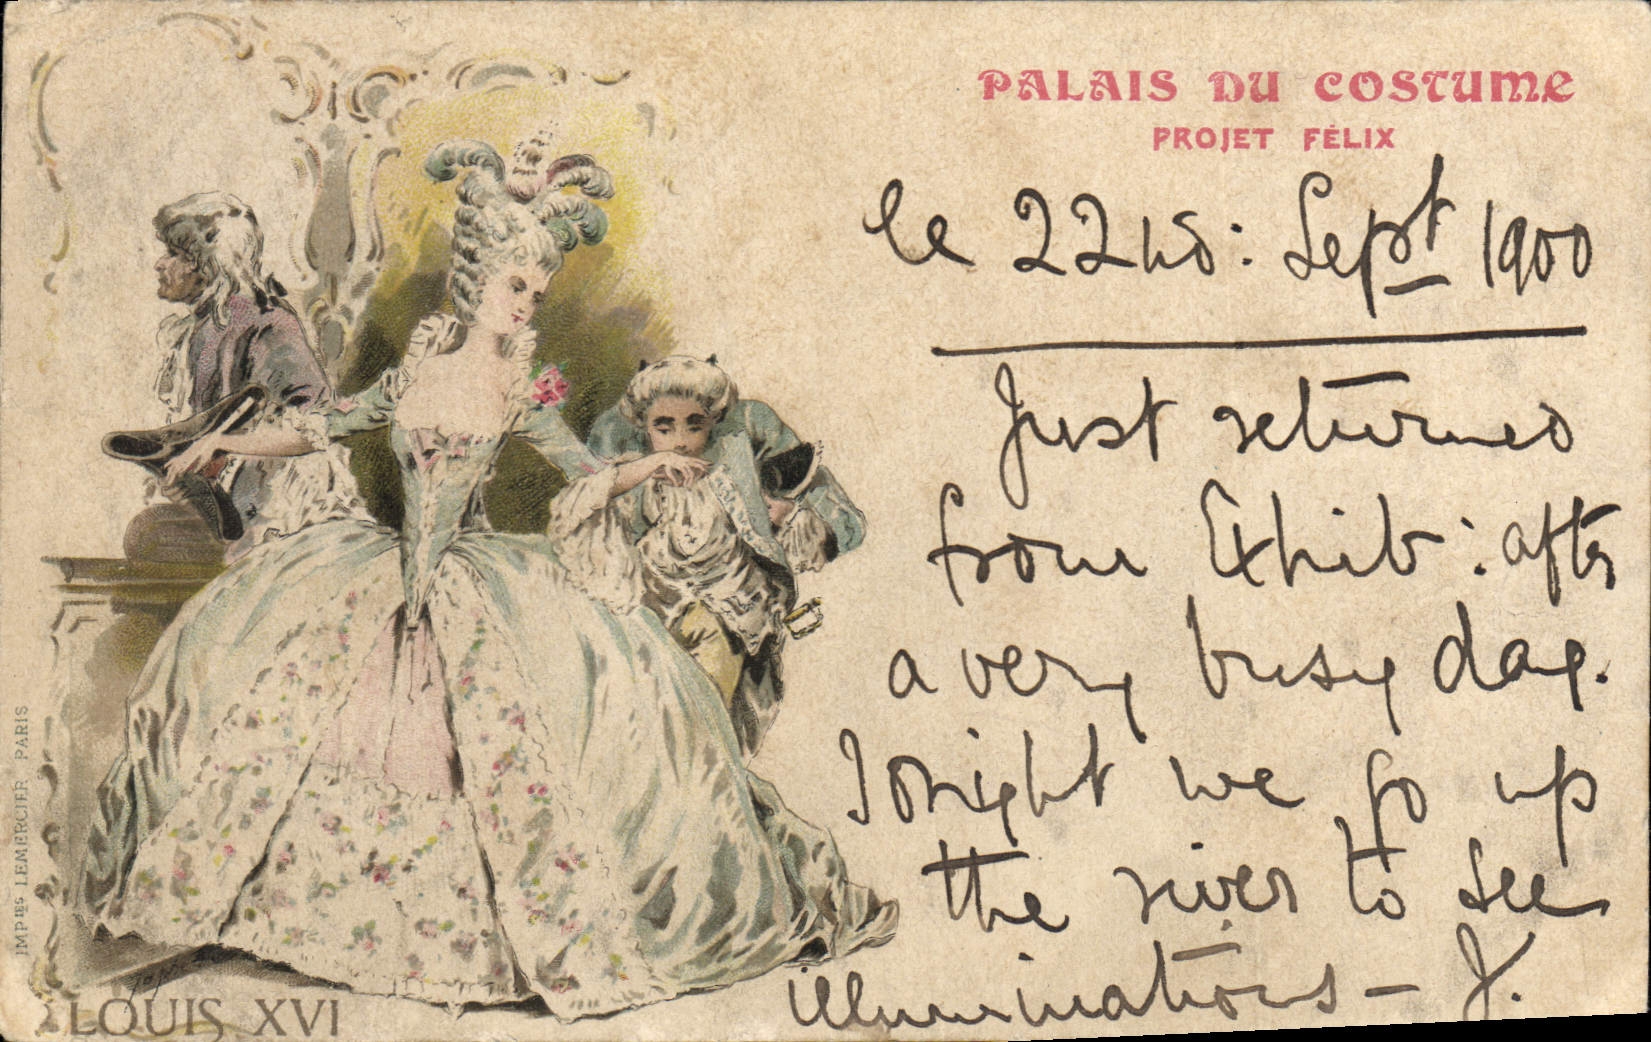 PALAIS DU COSTUME
PROJET FÉLIX
le 22 : Sept 1900
Just returned
from Exhib: after
a very busy day.
Tonight we go up
the river to see
illuminations – J.
IMPIES LEMERCIER PARIS
LOUIS XVI